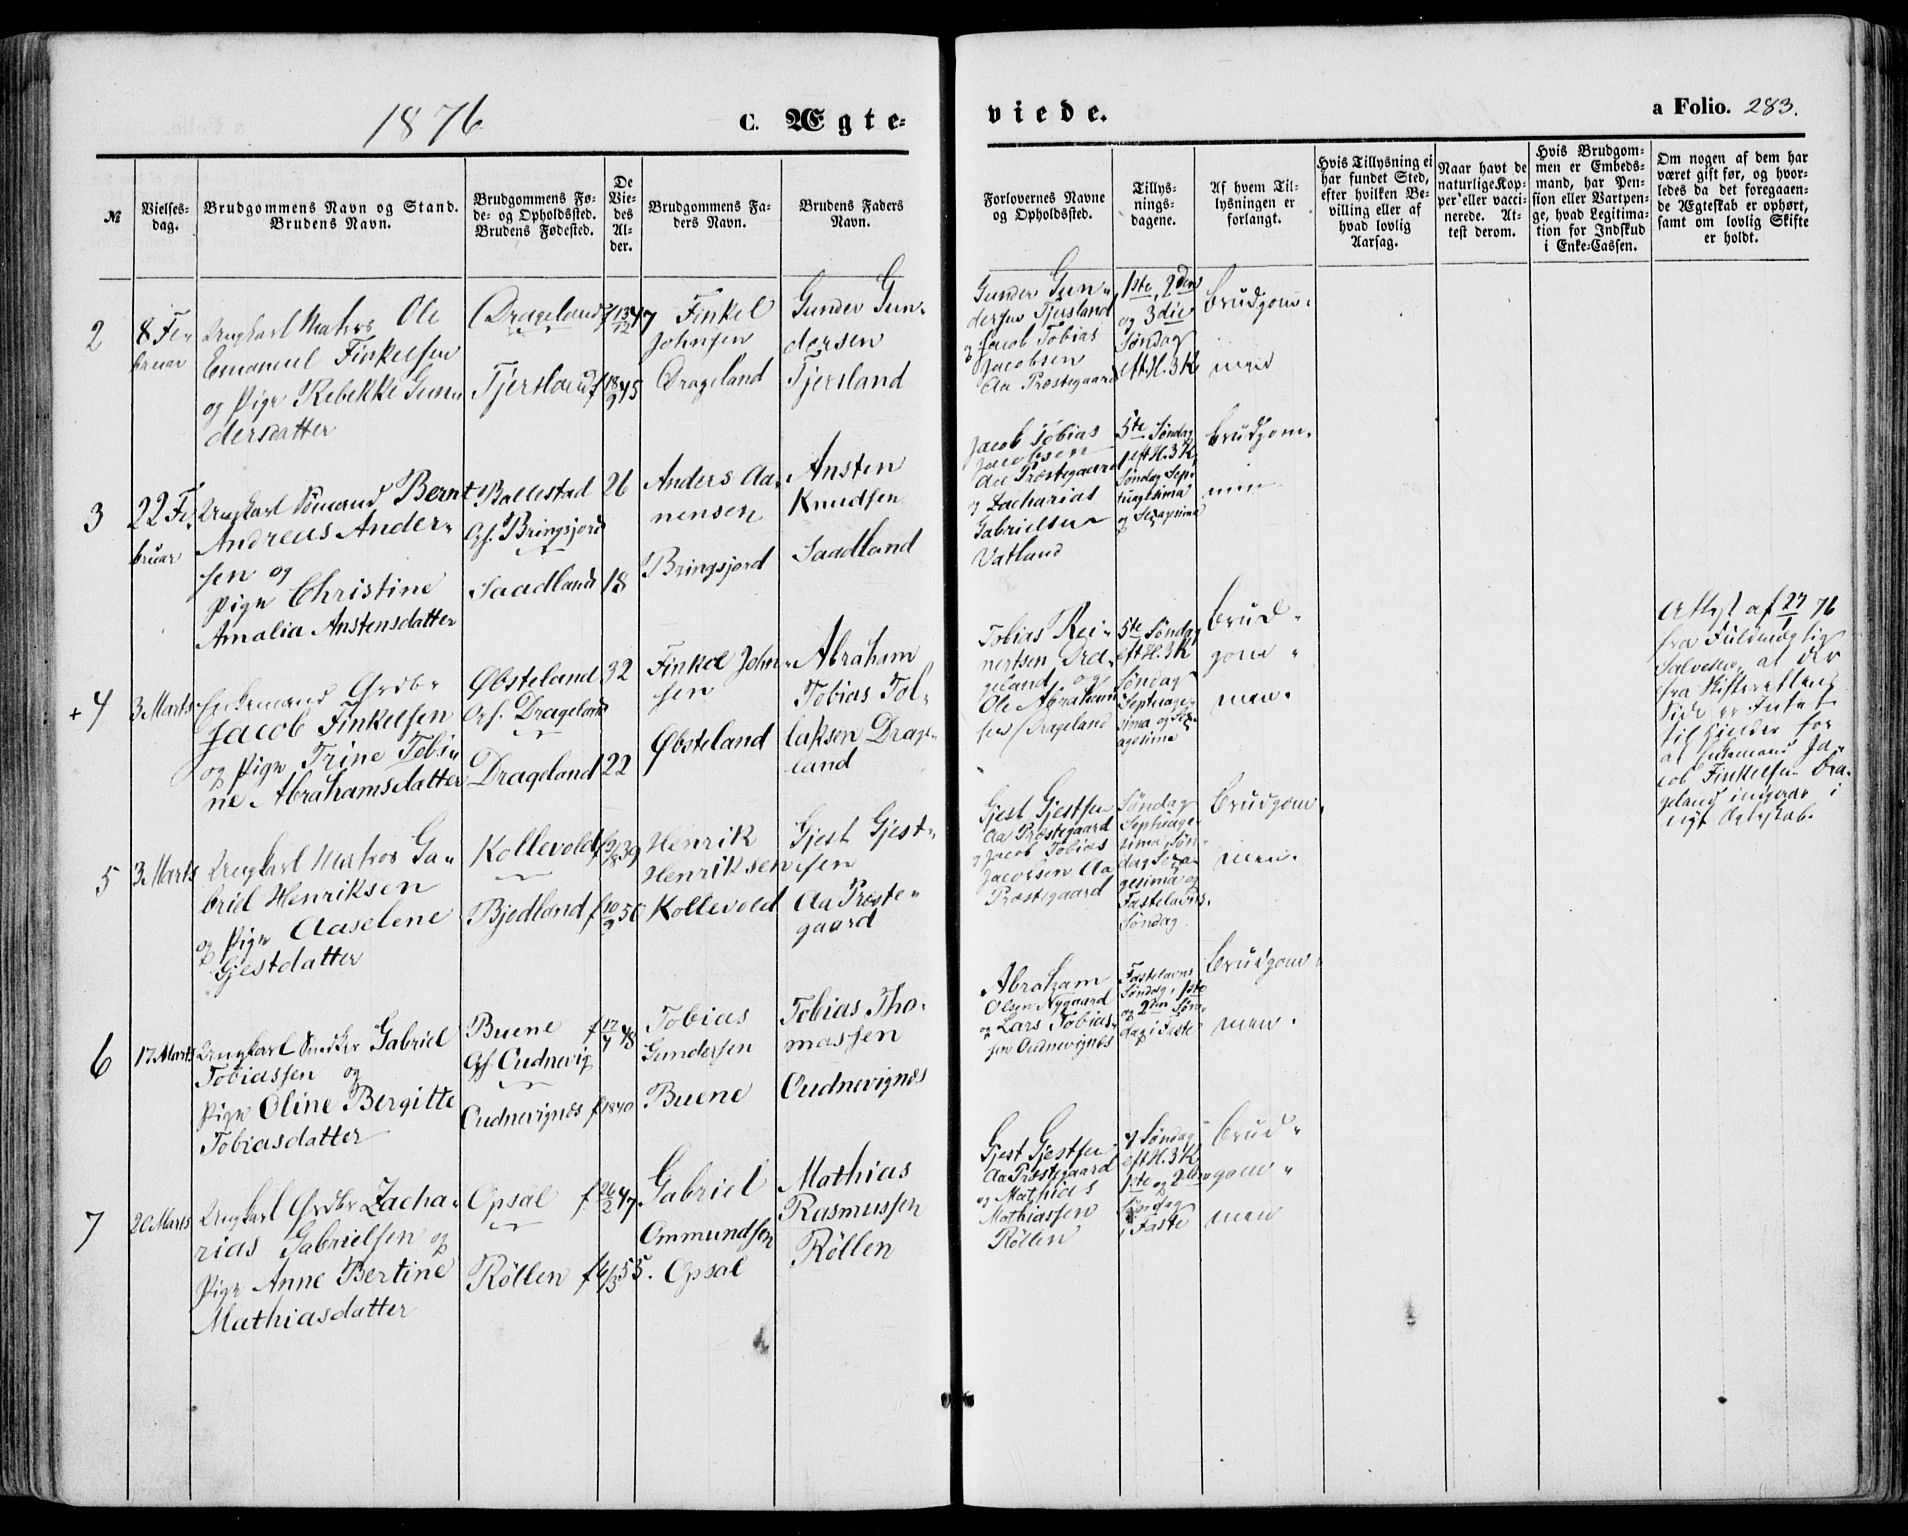 1876
C. Ægte-
viede.
a Folio. 283.
№
Vielses-
dag.
Brudgommens Navn og Stand.
Brudens Navn.
Brudgommens Fø-
de- og Opholdssted.
Brudens Fødested.
De
Vie-
des
Al-
der.
Brudgommens Fa-
ders Navn.
Brudens Faders
Navn.
Forlovernes Navne
og Opholdssted.
Tillys-
nings-
dagene.
Af hvem Til-
lysningen er
forlangt.
Hvis Tillysning ei
har fundet Sted,
efter hvilken Be-
villing eller af
hvad lovlig
Aarsag.
Naar havt de
naturlige Kop-
per eller vacci-
nerede. At-
test derom.
Hvis Brudgom-
men er Embeds-
mand, har Pen-
sion eller Vartpen-
ge, hvad Legitima-
tion for Indskud
i Enke-Cassen.
Om nogen af dem har
været gift før, og hvor-
ledes da det foregaaen-
de Ægteskab er ophørt,
samt om lovlig Skifte
er holdt.
2
8 Fe-
bruar
Ungkarl Matros Ole
Emanuel Finkelsen
og Pige Rebekke Gun-
dersdatter
Drageland
Tjersland
f 13/12 47
f 18/9 45
Finkel
Johnsen
Drageland
Gunder Gun-
dersen
Tjersland
Gunder Gun-
dersen Tjersland
og Jacob Tobias
Jacobsen
Aa Præstegaard
1ste, 2den
og 3die
Søndag
eft H. 3 K
Brudgom-
men
3
22 Fe-
bruar
Ungkarl Sømand Bernt
Andreas Ander-
sen og
Pige Christine
Amalia Anstensdatter
Ballestad
Opf. Bringsjord
Saadland
26
18
Anders Aa-
nensen
Bringsjord
Ansten
Knudsen
Saadland
Jacob Tobias
Jacobsen
Aa Præstegaard
og Zacharias
Gabrielsen
Vatland
5te Søndag
eft H. 3 K,
Søndag Sep-
tuagesima
og Sexagesima
Brudgom-
men
+ 4
3 Marts
Enkemand Grdbr
Jacob Finkelsen
og Pige Trine Tobi-
ne Abrahamsdatter
Øbsteland
Opf. Drageland
Drageland
32
22
Finkel John-
sen
Øbsteland
Abraham
Tobias Tol-
laksen Drage-
land
Tobias Rei-
nertsen Dra-
geland og
Ole Abraham-
sen Drageland
5te Søndag
eft H. 3 K
Søndag
Septuage-
sima og Sex-
agesima
Brud-
gom-
men.
Attest af 27/1 76
fra Fuldmægtig
Salvesen, at der
fra Skifterettens
Side er Intet
til Hinder for
at Enkemand Ja-
cob Finkelsen Dra-
geland indgaar i
nyt Ægteskab.
5
3 Marts
Ungkarl Matros Ga-
briel Henriksen
og Pige Aaselene
Gjestdatter
Kollevold
Bjodland
f 9/8 39
f 10/9 50
Henrik
Henriksen
Kollevold
Gjest Gjest-
sen
Aa Præste-
gaard
Gjest Gjestsen
Aa Præstegaard
og Jacob Tobias
Jacobsen Aa
Præstegaard
Søndag
Septuage-
sima, Søn-
dag Sexa-
gesima og
Fastelavns-
Søndag
Brudgom-
men.
6
17 Marts
Ungkarl Snedker Gabriel
Tobiassen og
Pige Oline Bergitte
Tobiasdatter
Buene
Opf. Oudnevig
Oudnevignæs
f 17/7 48
f 1840
Tobias
Gundersen
Buene
Tobias Tho-
massen
Oudnevignæs
Abraham
Olsen Nygaard
og Lars Tobias-
sen Oudnevignæs
Fastelavns
Søndag, 1ste
og 2den Søn-
dag i Faste
Brudgom-
men.
7
20 Marts
Ungkarl Grdbr Zacha-
rias Gabrielsen og
Pige Anne Bertine
Mathiasdatter
Opsal
Røllen
f 26/2 47.
f 6/3 55.
Gabriel
Ommundsen
Opsal
Mathias
Rasmussen
Røllen
Gjest Gjestsen
Aa Præstegaard
og Mathias
Mathiassen
Røllen
Søndag
eft H. 3 K
1ste og 2den
Søndag
i Faste
Brud-
gom-
men